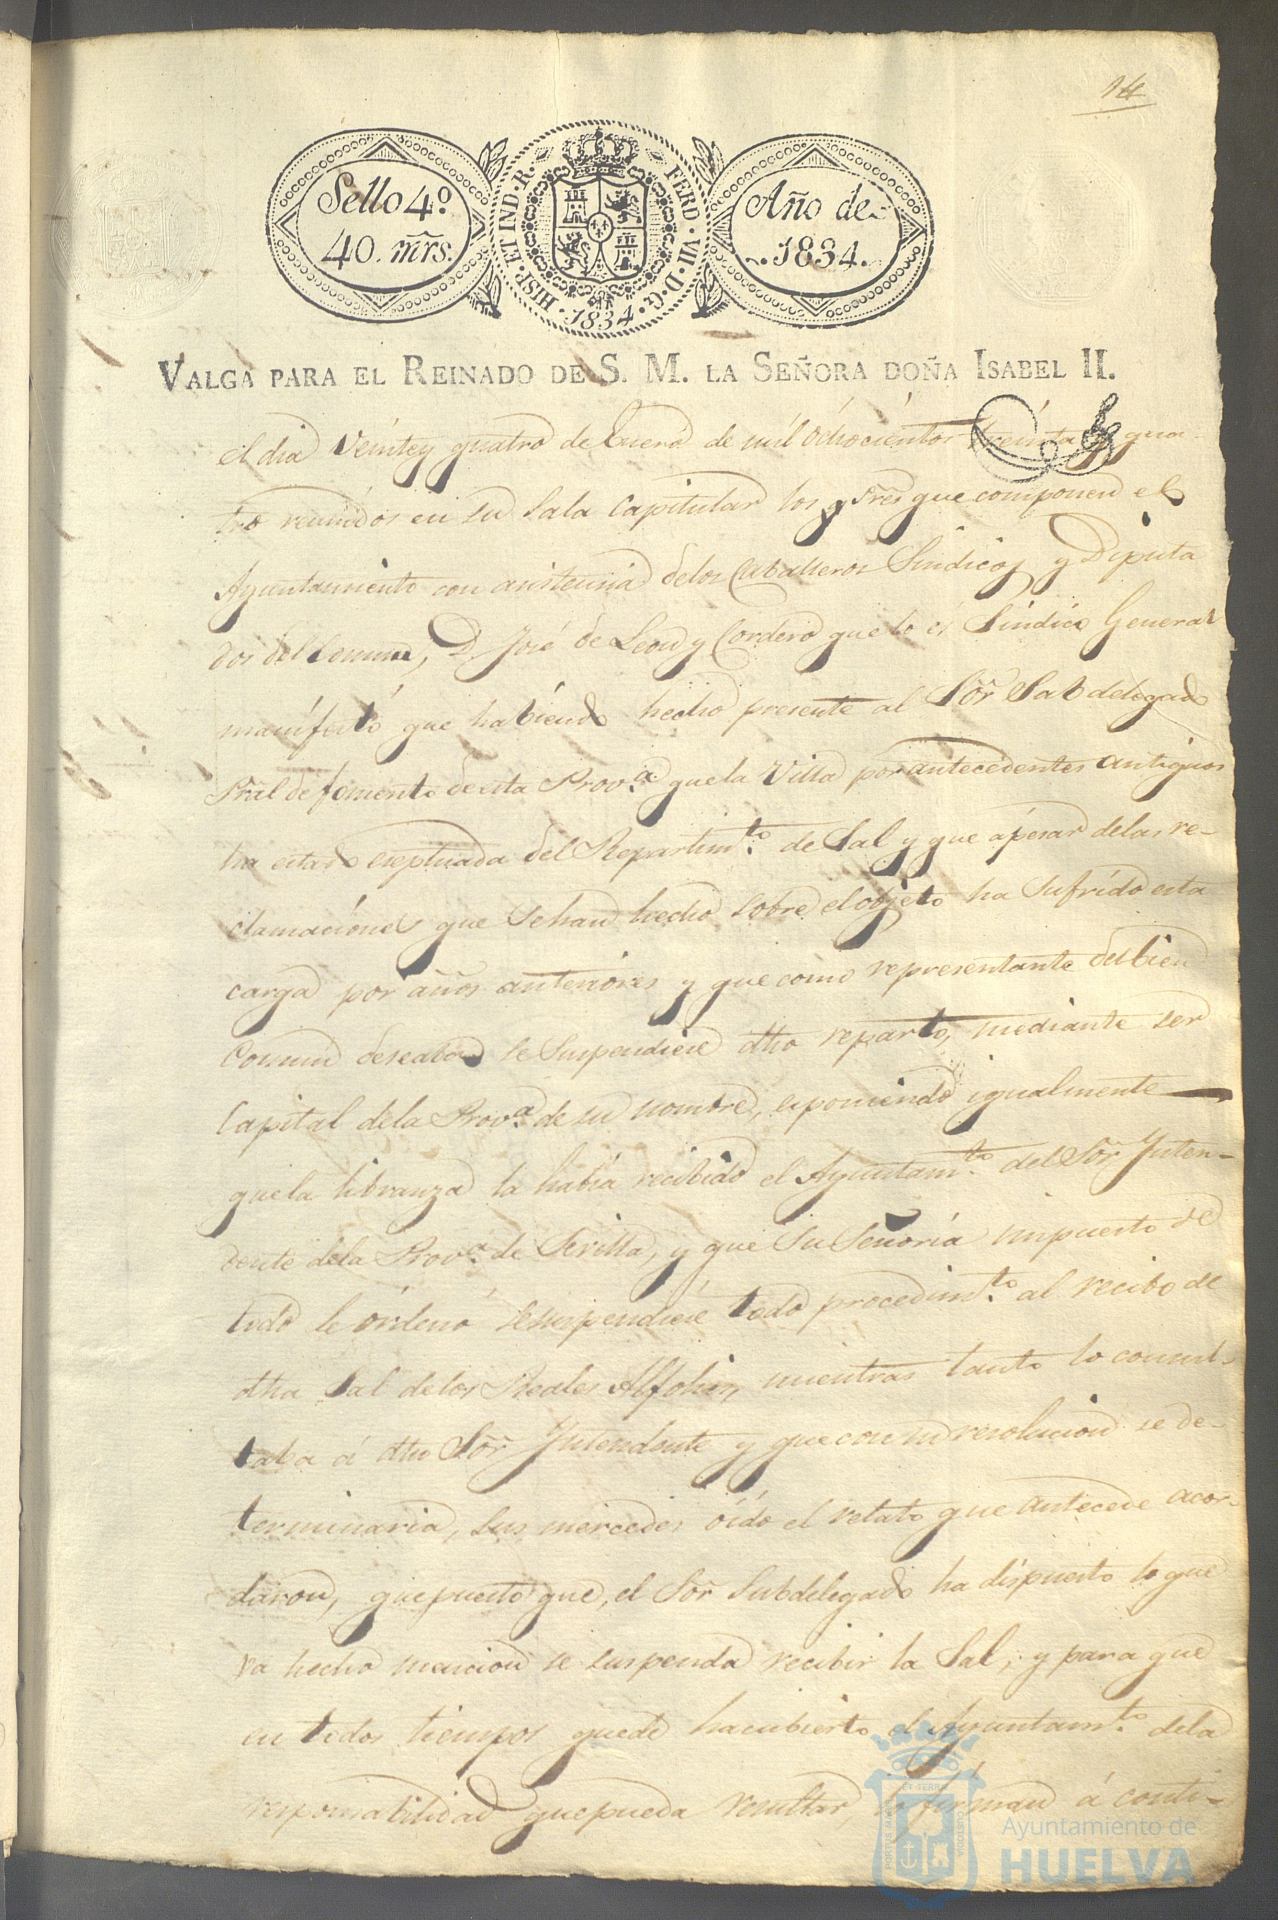 14
Sello 4º
40. mrs.
HISP. ET IND. R. FERD. VII. D. G.
1834
Año de
1834.
VALGA PARA EL REINADO DE S. M. LA SEÑORA DOÑA ISABEL II.
el dia Veinte y quatro de Enero de mil óchocientos treinta y qua-
tro reunidos en su Sala Capitular los Sres que componen el
Ayuntamiento con asistencia delos Caballeros Sindicos y Diputa
dos del Comun, D. José de Leon y Cordero que lo és Sindico General
manifestó que habiendo hecho presente al Sor Subdelegado
Pral de fomento deesta Prova que la Villa por antecedentes antiguos
ha estado eseptuada del Repartimto. de Sal y que ápesar delas re-
clamaciones que sehan hecho sobre el objeto ha sufrido esta
carga por años anteriores y que como representante del bien
Comun deseaba se Suspendiese dho reparto, mediante ser
Capital dela Prova de su nombre, esponiendo igualmente
quela libranza la habia recibido el Ayuntamto. del Sor Inten-
dente dela Prova de Sevilla, y que Su Señoria impuesto de
todo le órdenó sesuspendiese todo procedimto. al recibo de
dha Sal delos Reales Alfolies, mientras tanto lo consul-
taba á dho Sor Intendente y que con su resolucion se de-
terminaria, sus mercedes óido el relato que antecede acor-
daron, que puesto que, el Sor Subdelegado ha dispuesto lo que
va hecho mencion se suspenda recibir la Sal, y para que
en todos tiempos quede hacubierto el Ayuntamto. dela
responsabilidad que pueda resultar, lo firman á conti-
Ayuntamiento de
HUELVA